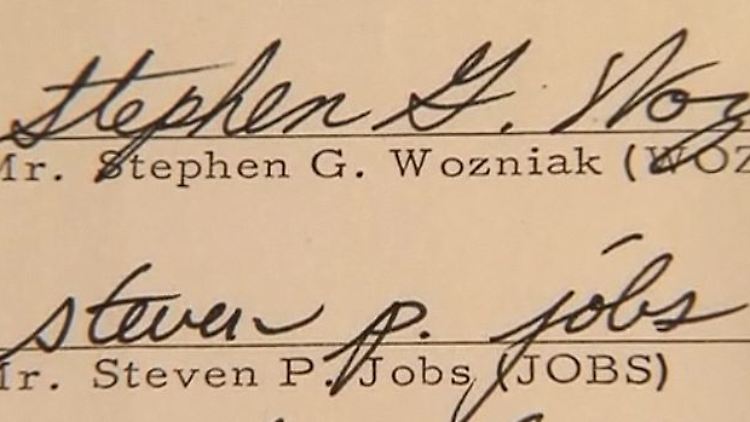 Stephen G. Woz
Mr. Stephen G. Wozniak (WOZ
steven p. jobs
Mr. Steven P. Jobs (JOBS)